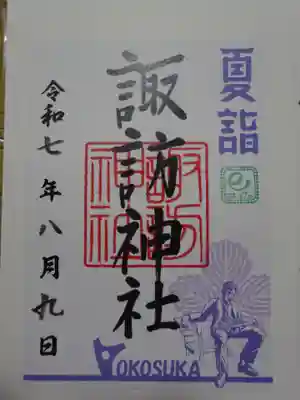 夏詣
諏訪神社
令和七年八月九日
YOKOSUKA